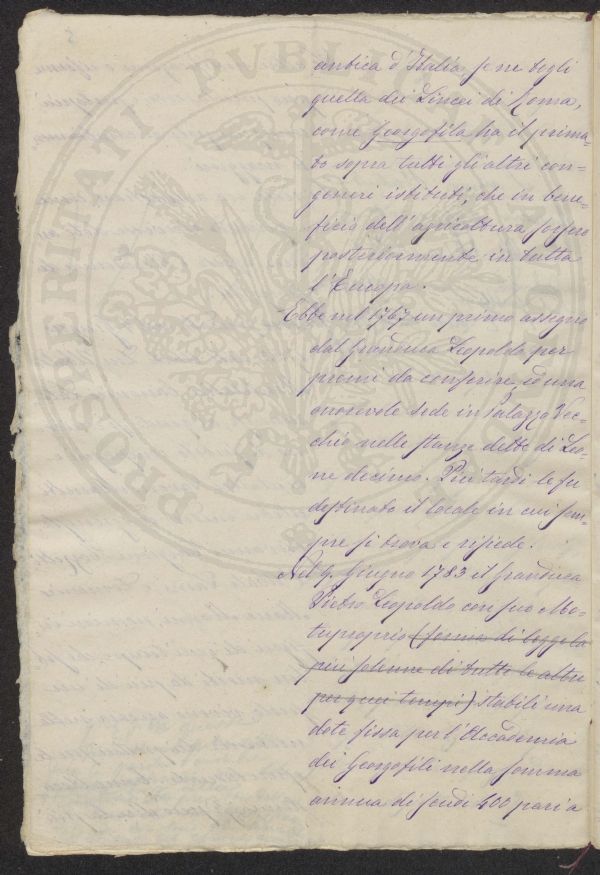 antica d'Italia se ne togli
quella dei Lincei di Roma,
come Georgofila ha il prima-
to sopra tutti gli altri con-
generi istituti, che in bene-
ficio dell'agricoltura sorsero
posteriormente in tutta
l'Europa.
Ebbe nel 1767 un primo assegno
dal Granduca Leopoldo per
premi da conferire, ed una
onorevole sede in Palazzo Vec-
chio nelle stanze dette di Leo-
ne decimo. Più tardi le fu
destinato il locale in cui sem-
pre si trova e risiede.
Nel 9. Giugno 1783 il Granduca
Pietro Leopoldo con suo Mo-
tuproprio (forma di legge la
più solenne di tutte le altre
per quei tempi) stabilì una
dote fissa per l'Accademia
dei Georgofili nella somma
annua di scudi 400 pari a
PROSPERITATI PUBLICAE